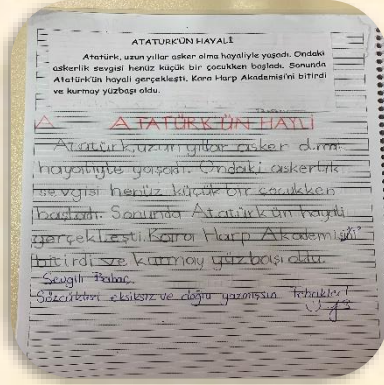 ATATÜRK'ÜN HAYALİ
Atatürk, uzun yıllar asker olma hayaliyle yaşadı. Ondaki
askerlik sevgisi henüz küçük bir çocukken başladı. Sonunda
Atatürk'ün hayali gerçekleşti. Kara Harp Akademisi'ni bitirdi
ve kurmay yüzbaşı oldu.
ATATÜRK'ÜN HAYLİ
Atatürk, uzun yıllar asker
hayaliyle yaşadı. Ondaki askerlik
sevgisi henüz küçük bir çocukken
başladı. Sonunda Atatürk'ün hayali
gerçekleşti. Kara Harp
bitirdi ve kurmay yüzbaşı oldu.
Sevgili
Sözcükleri eksiksiz ve doğru yazmışsın. Tebrikler!